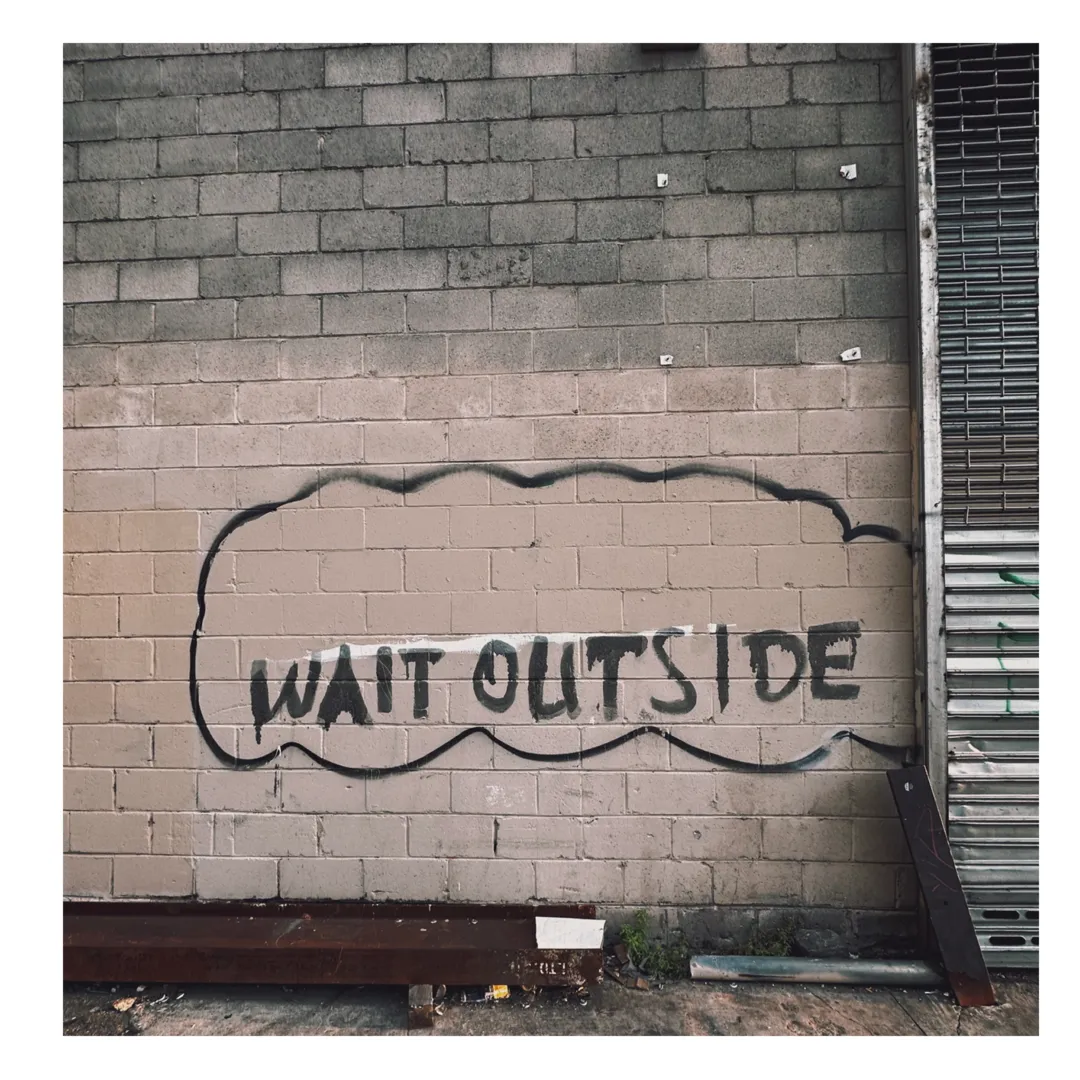 WAIT OUTSIDE